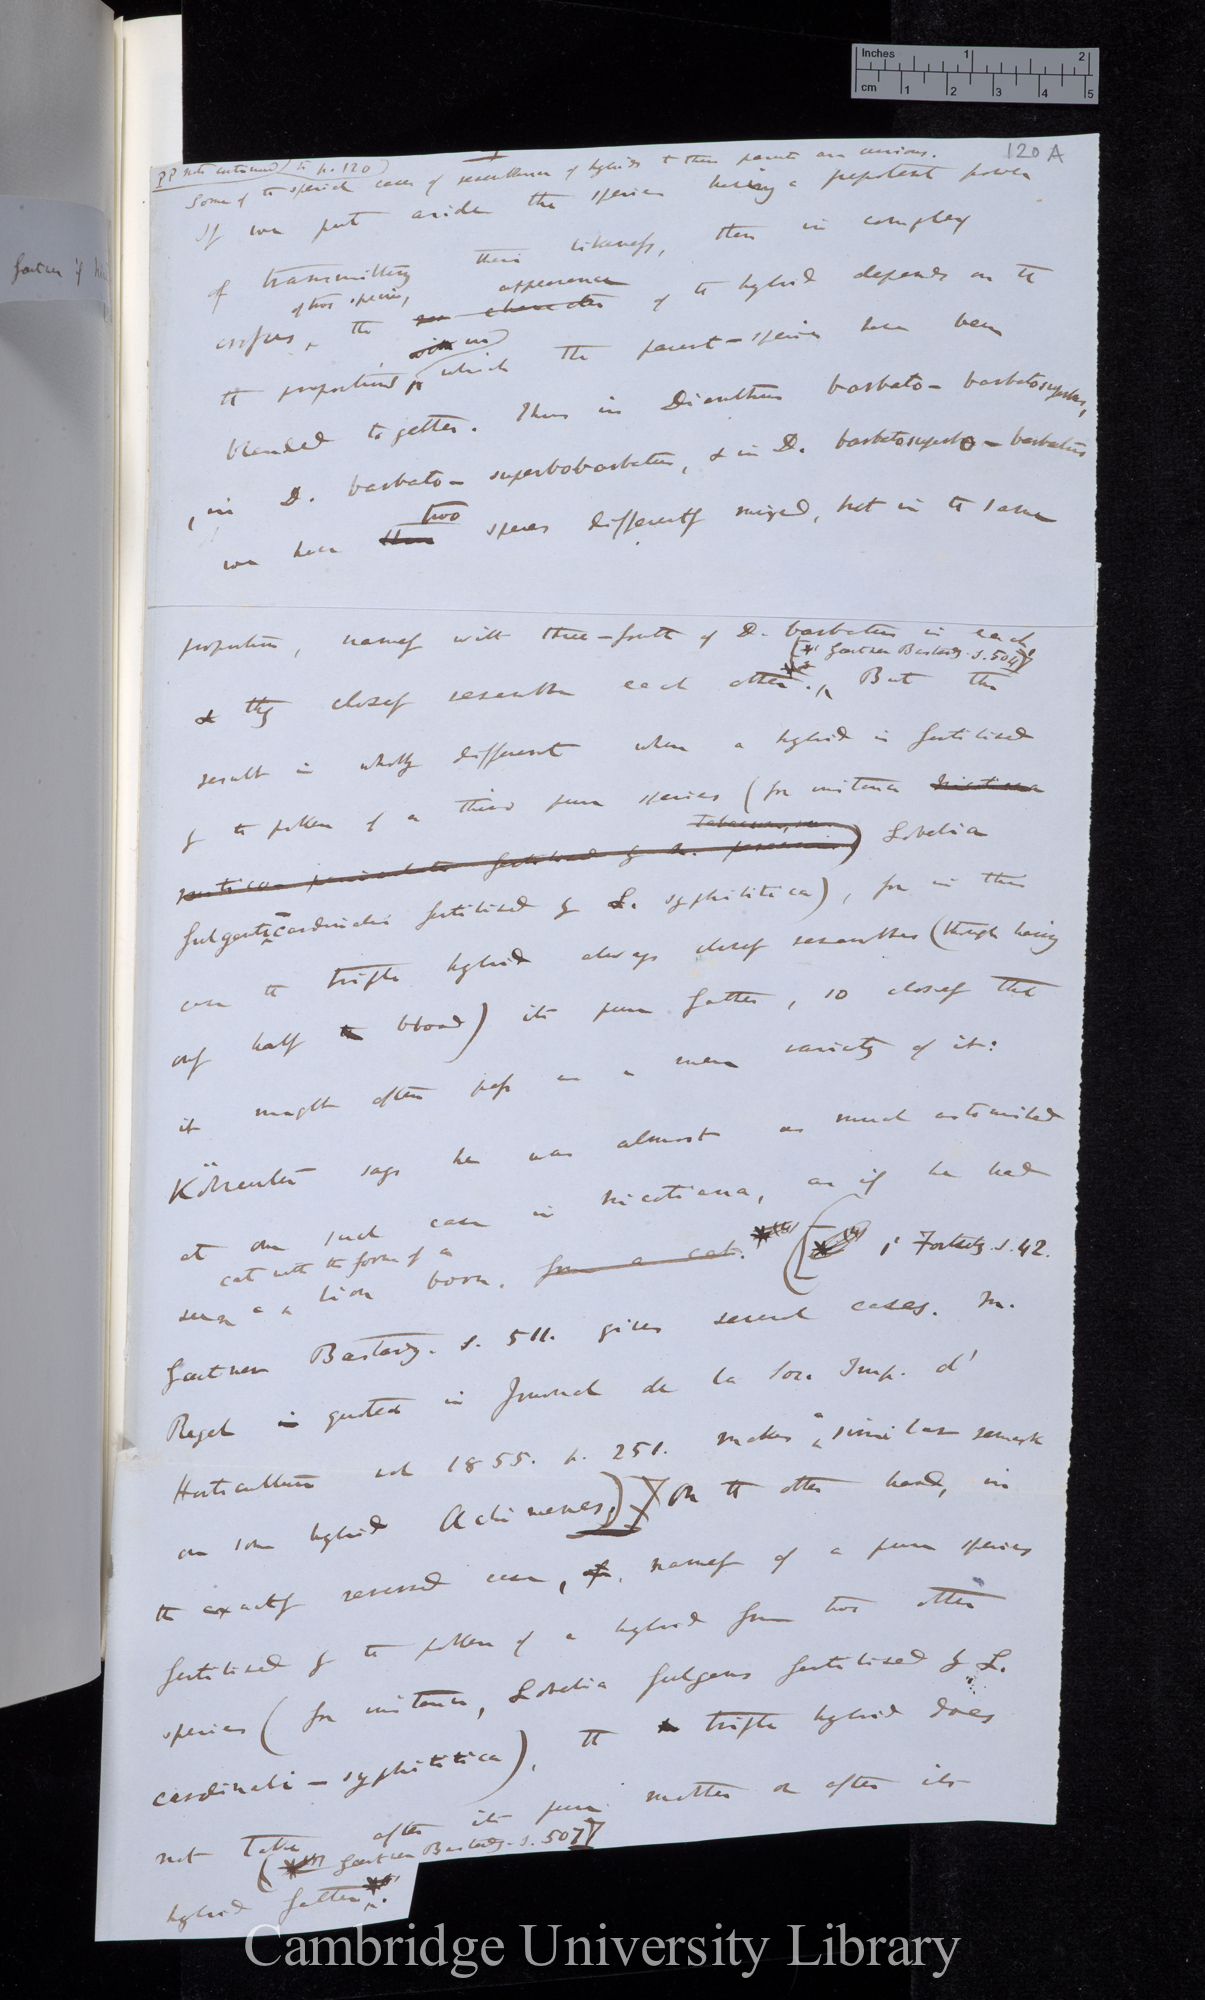 Inches 1 2
cm 1 2 3 4 5
120 A
PP note continued (to p. 120)
Some of the special cases of resemblance of hybrids to their parents are curious.
If we put aside the species having a prepotent power
of transmitting their likeness, then in complex
of two species, appearance
crosses, the character of the hybrid depends on the
with in
the proportions, which the parent-species have been
blended together. Thus in Dianthus barbato-barbatosuperbus,
, in D. barbato-superbobarbatus, & in D. barbatosuperbo-barbatus
two
we have three species differently mixed, but in the same
proportion, namely with three-fourth of D. barbatus in each,
(* Gaertner Bastardz. s. 504)
& they closely resemble each other. But the
result is wholly different when a hybrid is fertilised
by the pollen of a third pure species (for instance Nicotiana
Tabacum,
rustica-paniculata fertilised by N.
Lobelia
fulgenti-cardinalis fertilised by L. syphilitica), for in this
case the triple hybrid always closely resembles (though having
only half blood) its pure father, so closely that
it might often pass as a mere variety of it:
Kölreuter says he was almost as much astonished
at one such case in Nicotiana, as if he had
cat with the form of a
seen a lion born. from a cat. Fortsetz. s. 42.
Gaertner Bastardz. s. 511. gives several cases. M.
Regel is quoted in Journal de la Soc. Imp. d'
Horticulture vol 1855. p. 251. makes a similar remark
on some hybrid Achimenes.) On the other hand, in
the exactly reversed case, namely of a pure species
fertilised by the pollen of a hybrid from two other
species (for instance, Lobelia fulgens fertilised by L.
cardinali-syphilitica), the triple hybrid does
not take after its pure mother or after its
(* Gaertner Bastardz. s. 507)
hybrid father.
Gaertner if
Cambridge University Library